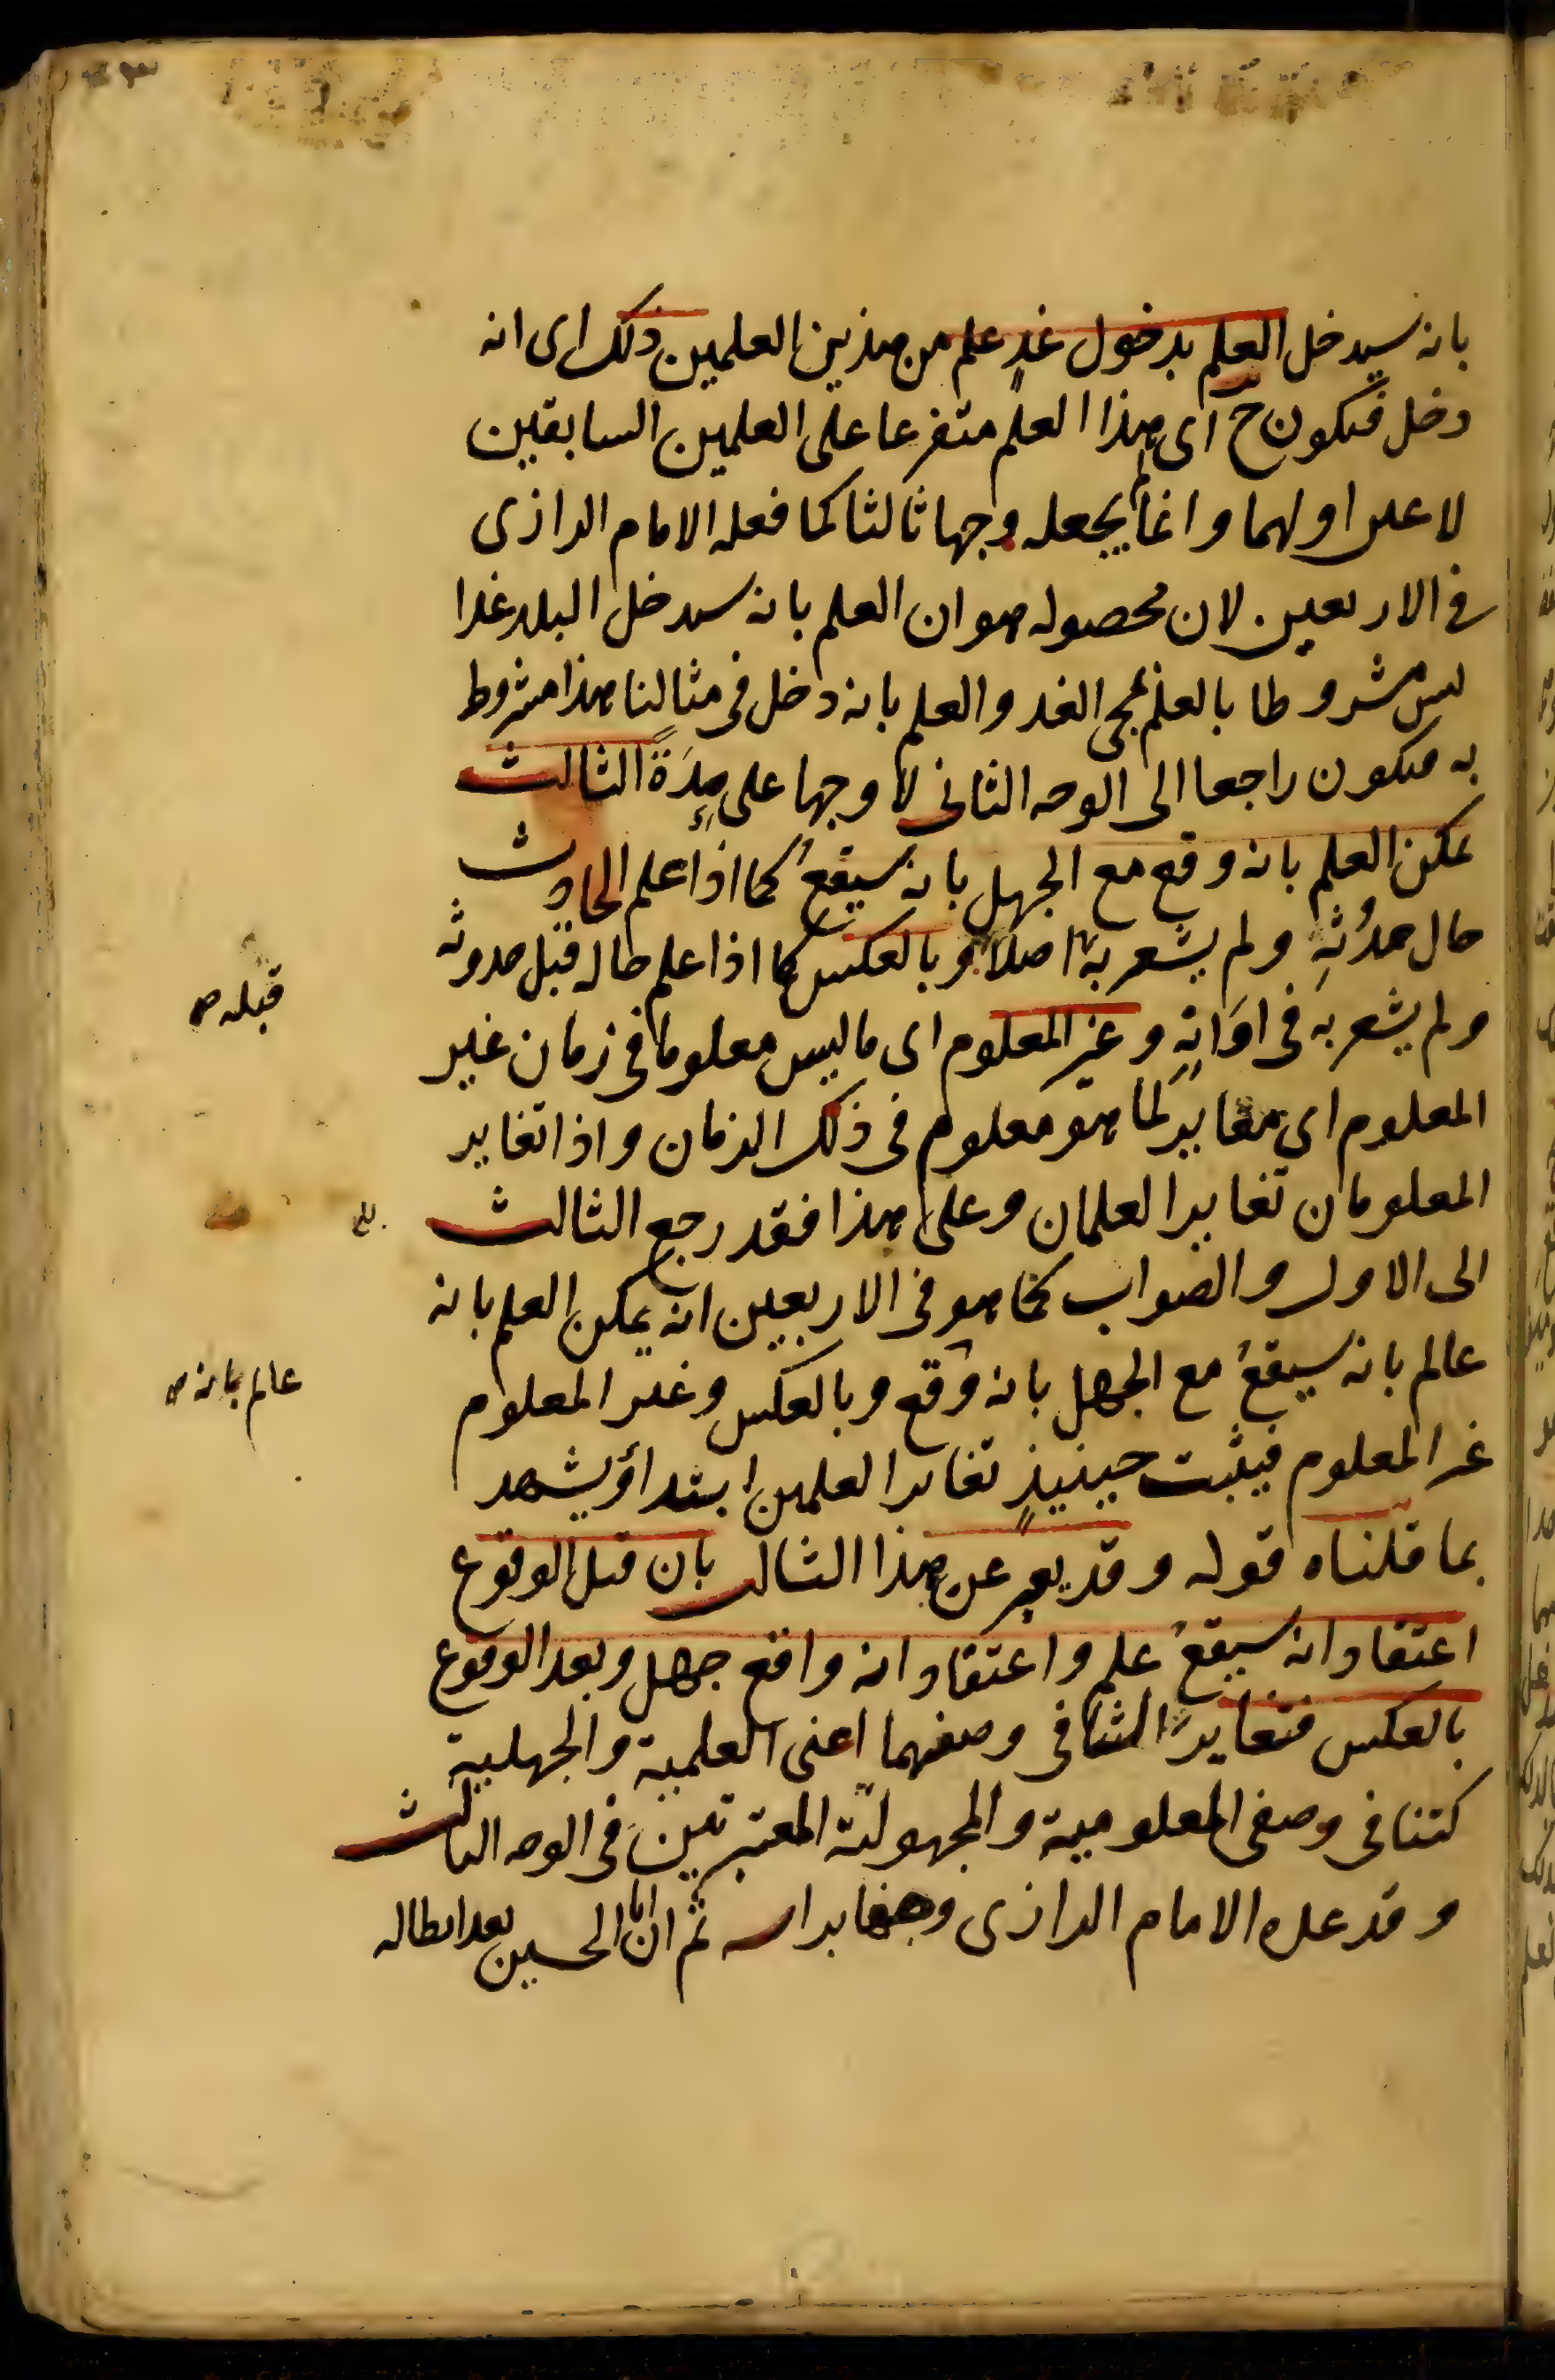 بانه سيدخل العلم بدخول غدٍ علم من هذين العلمين ذلك اى انه
دخل فيكون ح اى هذا العلم متفرعا على العلمين السابقين
لا على اولهما وانما لم يجعله وجها ثالثا كما فعله الامام الرازى
فى الاربعين لان محصوله هو ان العلم بانه سيدخل البلد غدا
ليس مشروطا بالعلم بمجئ الغد والعلم بانه دخل فى مثالنا هذا مشروط
به فيكون راجعا الى الوجه الثانى لا وجها على حِدَةٍ الثالث
يمكن العلم بانه وقع مع الجهل بانه سيقعُ كما اذا علم الحادث
حال حدُثِه ولم يشعر به اصلا وبالعكس كما اذا علم حاله قبل حدوثه
قبله صح
ولم يشعر به فى اوَانِه وغير المعلوم اى ما ليس معلوما فى زمان غير
المعلوم اى مغايرٌ لما هو معلوم فى ذلك الزمان واذا تغاير
المعلومان تغاير العلمان وعلى هذا فقد رجع الثالث
الى الاول والصواب كما هو فى الاربعين انه يمكن العلم بانه
عالم بانه سيقعُ مع الجهل بانه وقع وبالعكس وغير المعلوم
عالم بانه ص
غير المعلوم فيثبت حينيذٍ تغاير العلمين ابتداءً ويشهد
بما قلناه قوله وقد يعبر عن هذا الثالث بان قبل الوقوع
اعتقاد انه سيقعُ علم واعتقاد انه واقع جهل وبعد الوقوع
بالعكس فتغايرا لتنافى وصفهما اعنى العلمية والجهلية
كتنافى وصفى المعلومية والمجهولية المعتبرتين فى الوجه الثالث
وقد عده الامام الرازى وجها براسه ثم ان ابا الحسين بعد ابطاله